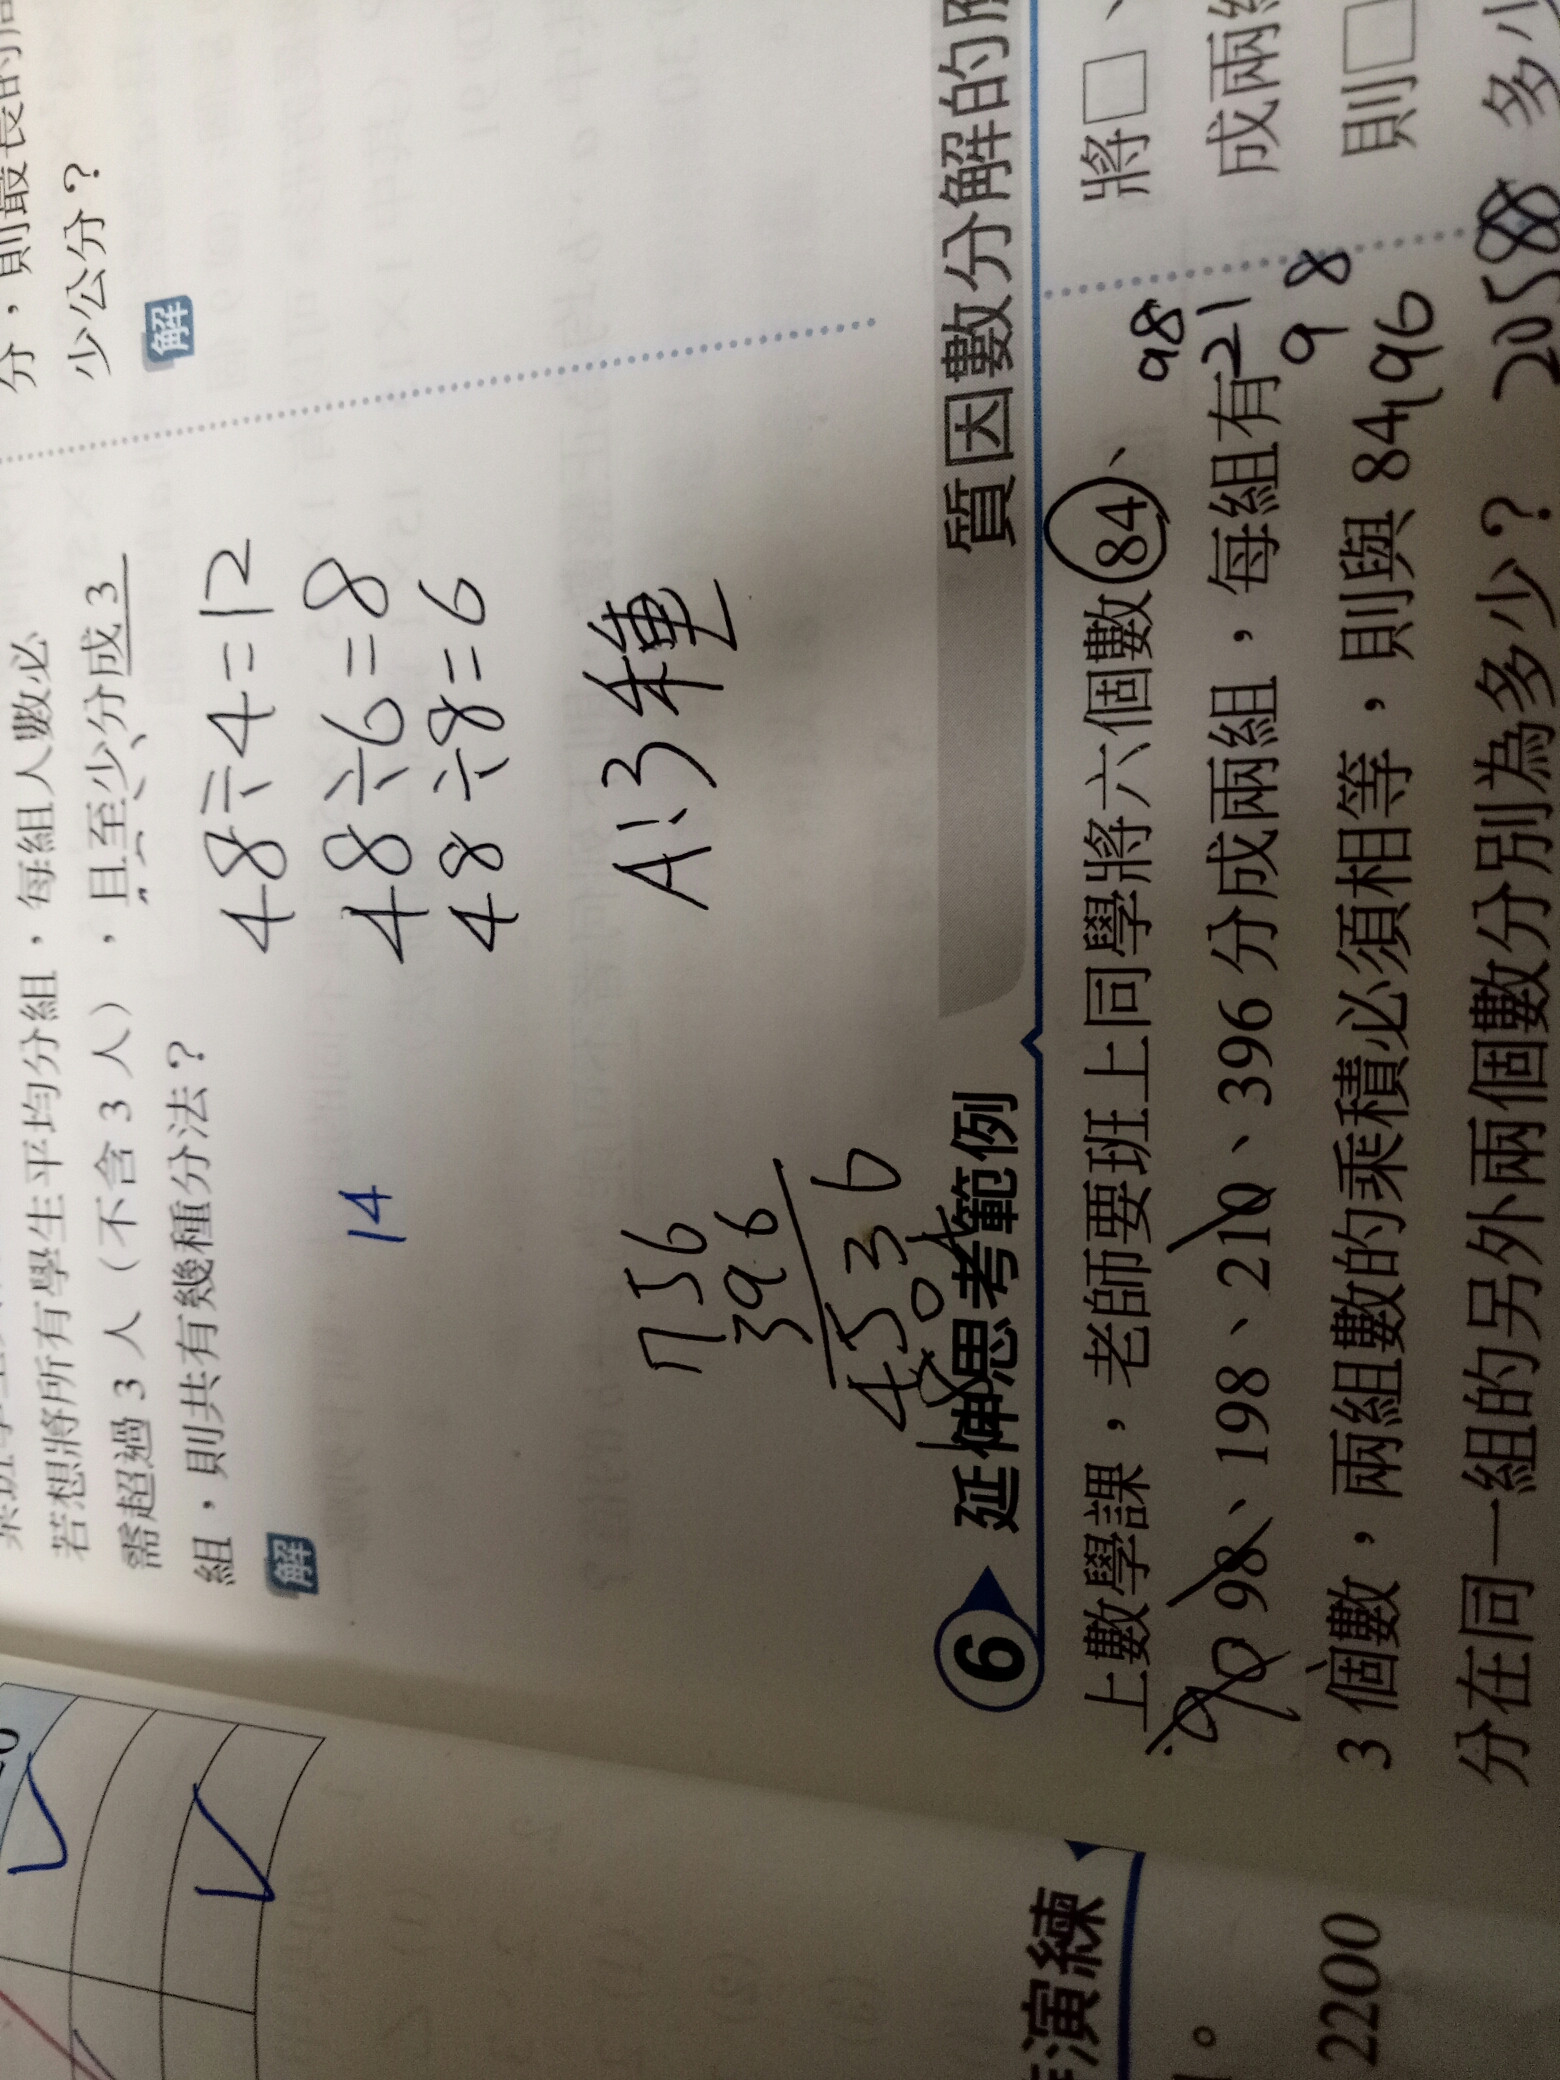 分,則最長的
少公分?
解
若想將所有學生平均分組,每組人數必
需超過 3 人(不含 3 人),且至少分成 3
組,則共有幾種分法?
解
48÷4=12
48÷6=8
48÷8=6
A:3種
14
756
396
4536
6 延伸思考範例
質因數分解的
上數學課,老師要班上同學將六個數 84、
98、198、210、396 分成兩組,每組有
3 個數,兩組數的乘積必須相等,則與 84
分在同一組的另外兩個數分別為多少?
98
21
98
196
2058
將□、
成兩
則□
多
演練
2200